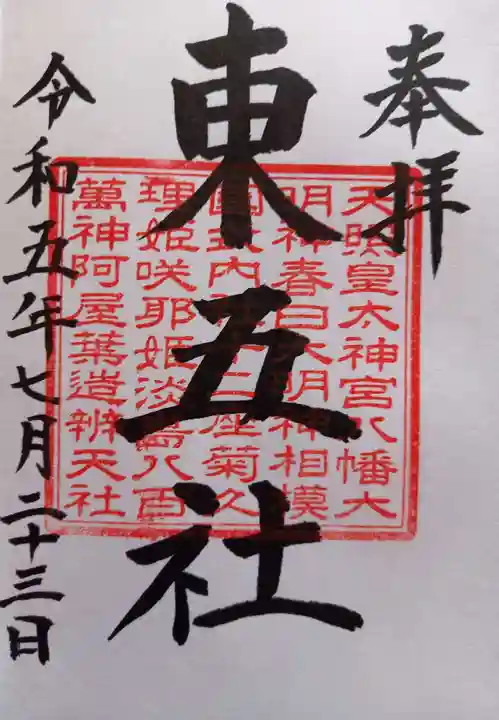 奉拝
東五社
天照皇太神宮八幡大
明神春日大明神相模
国内座菊久
理姫咲耶姫淡島八百
萬神阿屋葉造辨天社
令和五年七月二十三日